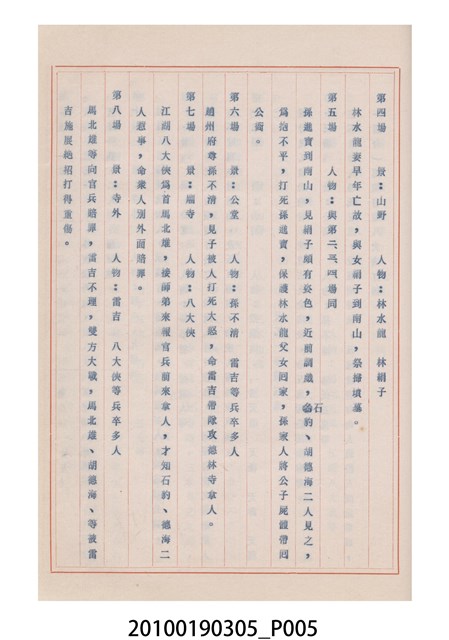 第四場　景：山野　人物：林水龍　林絹子
林水龍妻早年亡故，與女絹子到南山，祭掃墳墓。
第五場　人物：與第二、三、四場同
孫進寶到南山，見絹子頗有姿色，近前調戲，石豹、德海二人見之，
為抱不平，打死孫進寶，保護林水龍父女回家，孫家人將公子屍體帶回
公衙。
第六場　景：公堂　人物：孫不清　雷吉等兵卒多人
趙州府尊孫不清，見子被人打死大怒，命雷吉帶隊攻德林寺拿人。
第七場　景：廟寺　人物：八大俠
江湖八大俠為首馬北雄，接師弟來報官兵前來拿人，才知石豹、德海二
人惹事，命眾人別外面賠罪。
第八場　景：寺外　人物：雷吉　八大俠等兵卒多人
馬北雄等向官兵賠罪，雷吉不理，雙方大戰，馬北雄、胡德海、等被雷
吉施展絕招打得重傷。
20100190305_P005